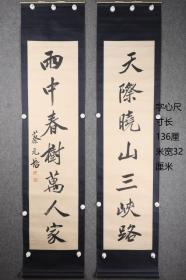 天際曉山三峽路
雨中春樹萬人家
蔡元培
字心尺
寸长
136厘
米宽32
厘米